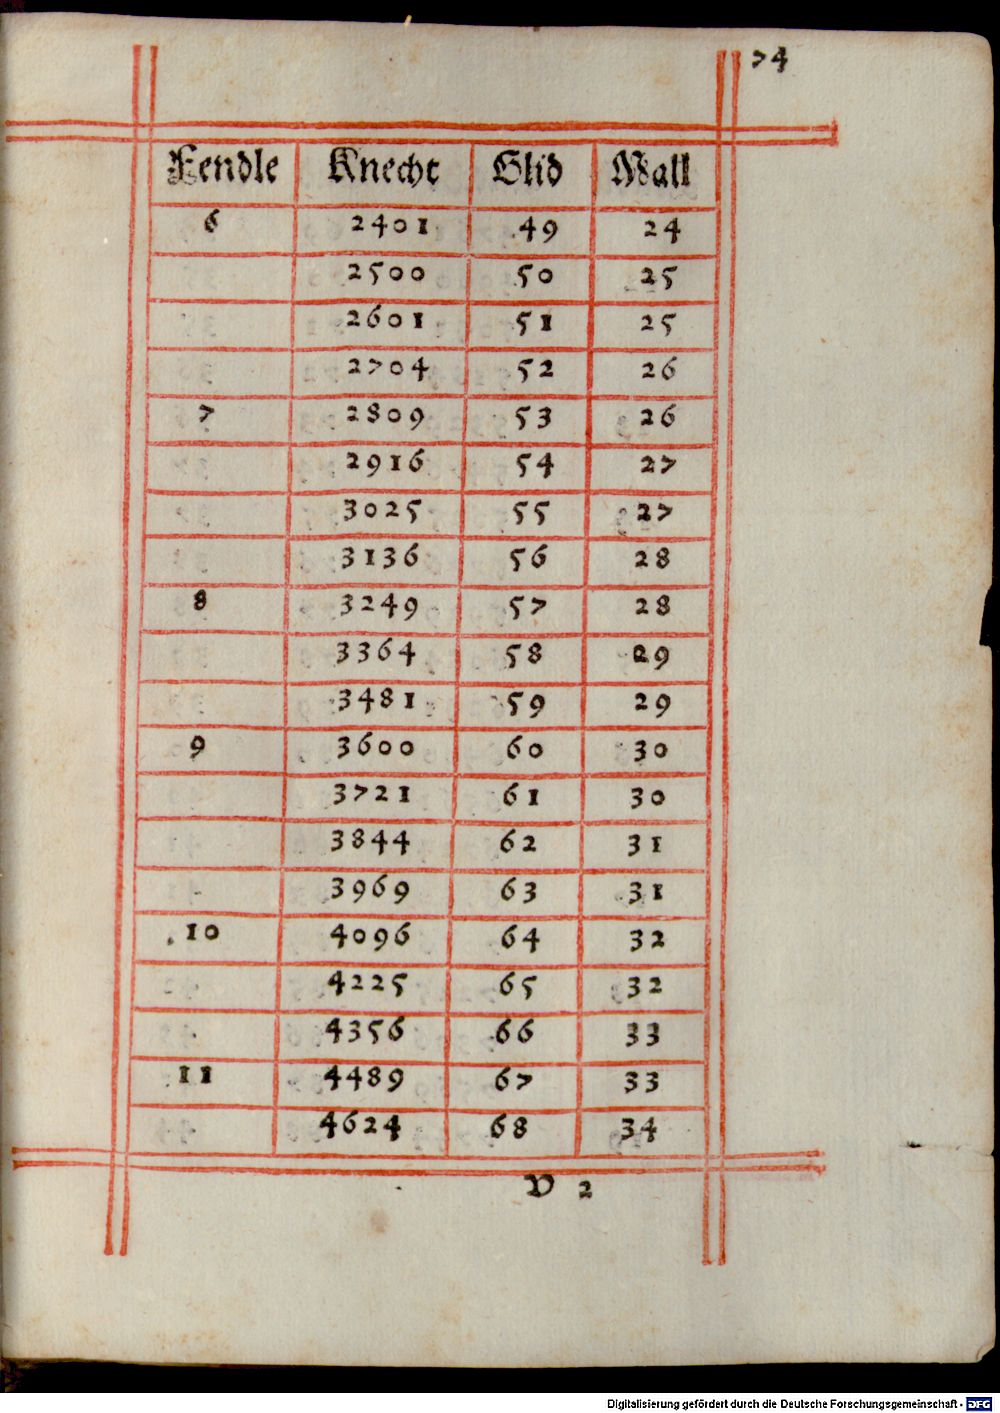 74
Fendle Knecht Glid Wall
6 2401 49 24
2500 50 25
2601 51 25
2704 52 26
7 2809 53 26
2916 54 27
3025 55 27
3136 56 28
8 3249 57 28
3364 58 29
3481 59 29
9 3600 60 30
3721 61 30
3844 62 31
3969 63 31
10 4096 64 32
4225 65 32
4356 66 33
11 4489 67 33
4624 68 34
V 2
Digitalisierung gefördert durch die Deutsche Forschungsgemeinschaft - DFG